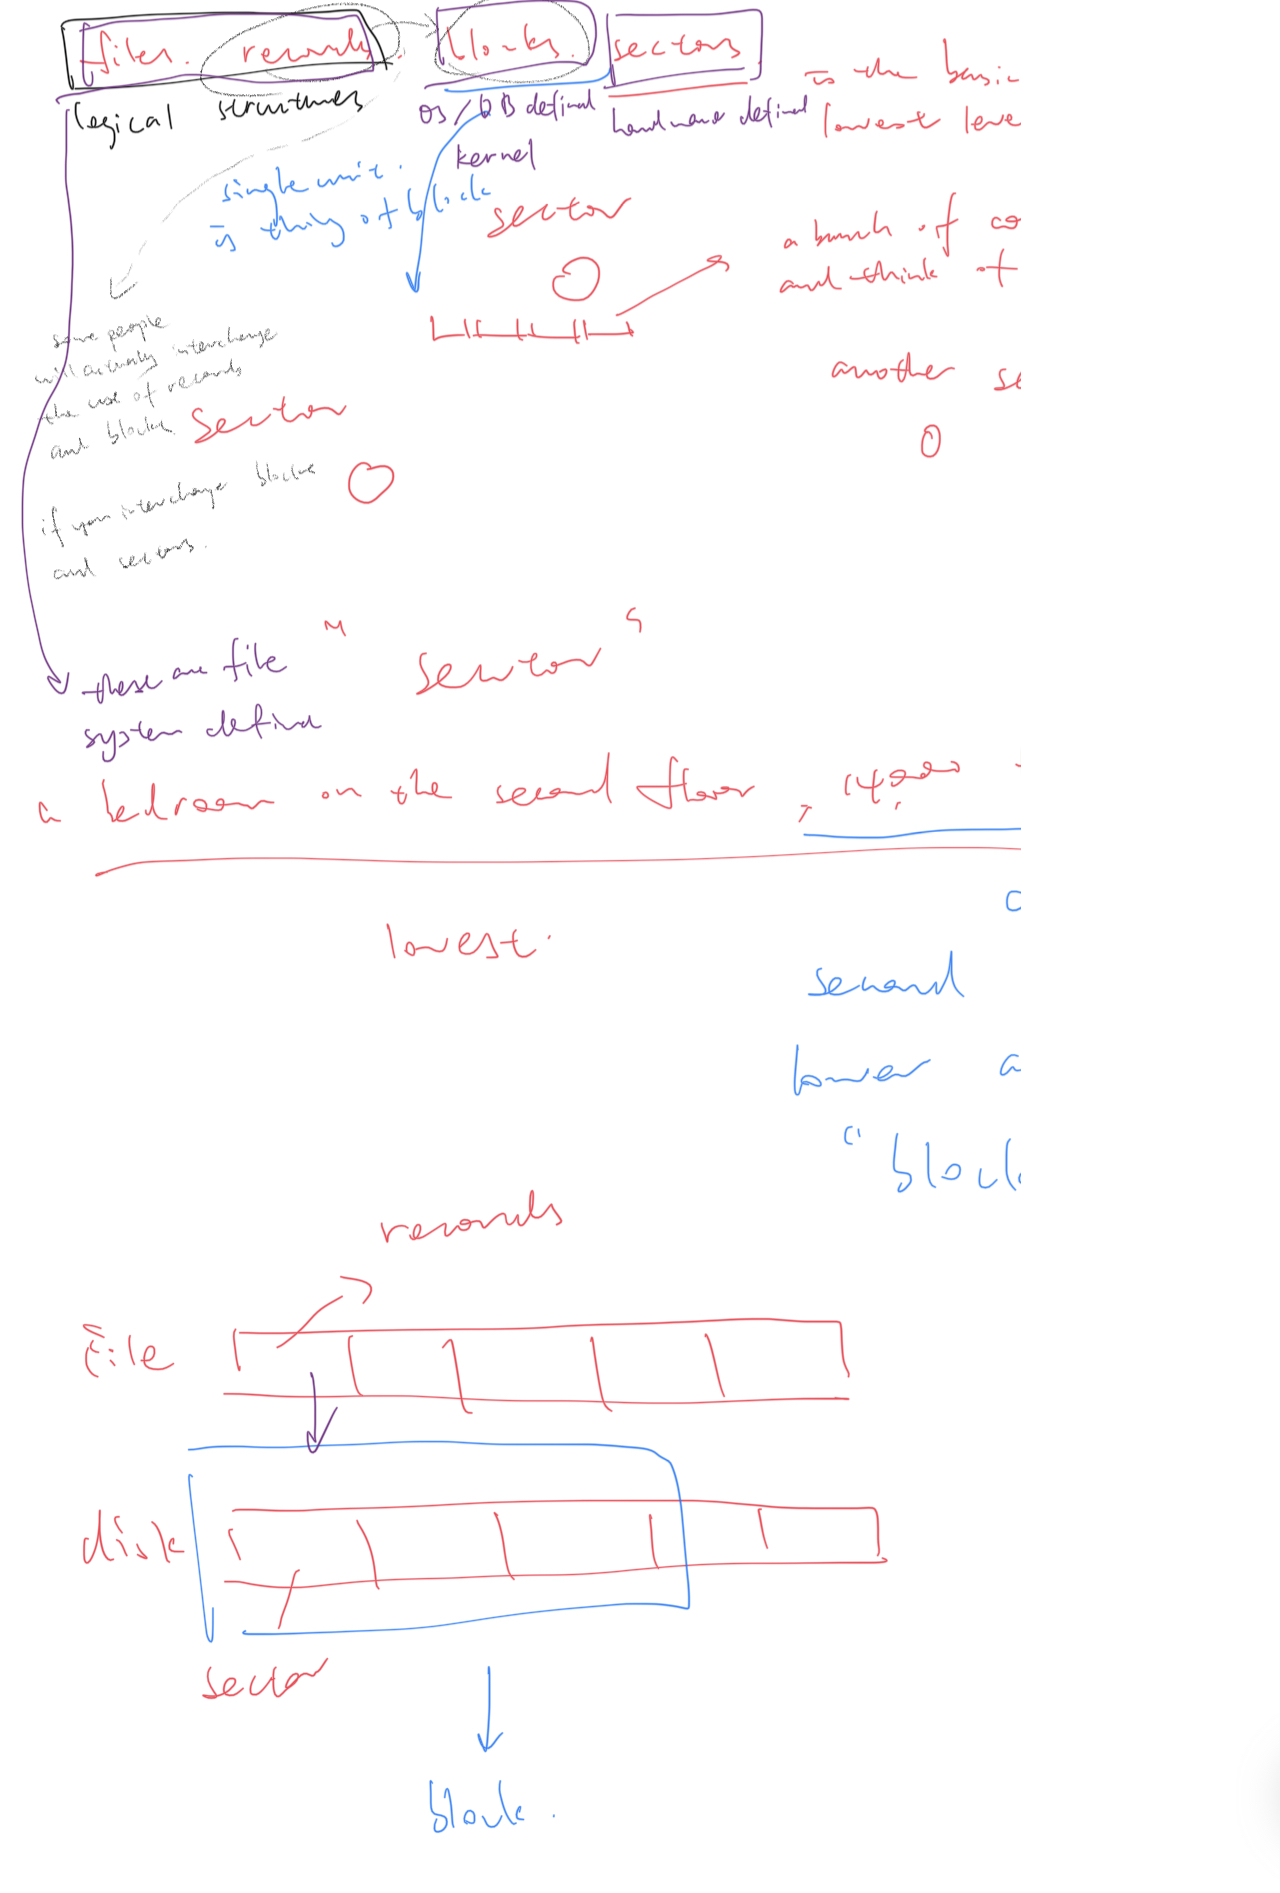 files. records. blocks. sectors
logical structures
OS/DB defined
kernel
hardware defined
is the basic
lowest leve
single unit.
is thing of block
sector
a bunch of co
and think of
some people
will actually interchange
the use of records
and blocks
another se
sector
if you interchange blocks
and sectors.
these are file
system defined
" sector "
a bedroom on the second floor,
lowest.
second
lower a
" block
records
file
disk
sector
block.